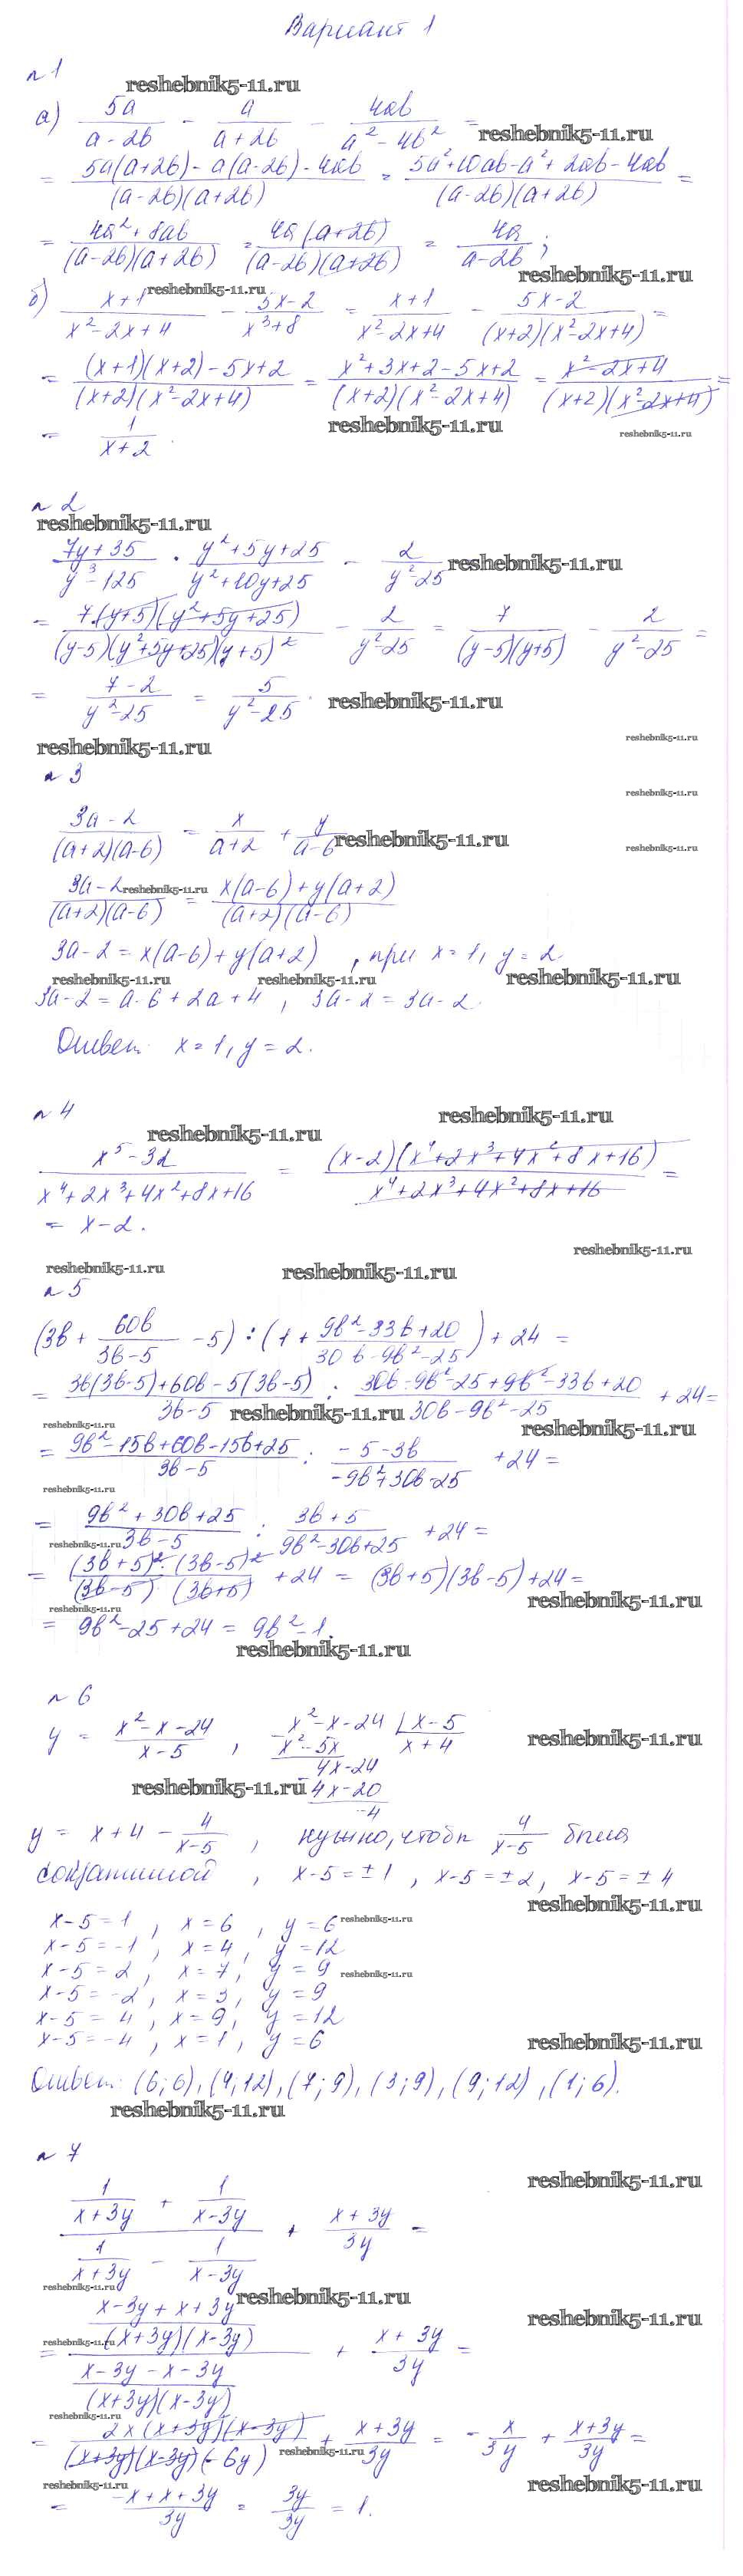 Вариант 1
№1
reshebnik5-11.ru
а) 5a/(a-2b) - a/(a+2b) - 4ab/(a²-4b²) =
reshebnik5-11.ru
= (5a(a+2b)-a(a-2b)-4ab)/((a-2b)(a+2b)) = (5a²+10ab-a²+2ab-4ab)/((a-2b)(a+2b)) =
= (4a²+8ab)/((a-2b)(a+2b)) = (4a(a+2b))/((a-2b)(a+2b)) = 4a/(a-2b);
reshebnik5-11.ru
reshebnik5-11.ru
б) (x+1)/(x²-2x+4) - (5x-2)/(x³+8) = (x+1)/(x²-2x+4) - (5x-2)/((x+2)(x²-2x+4)) =
= ((x+1)(x+2)-5x+2)/((x+2)(x²-2x+4)) = (x²+3x+2-5x+2)/((x+2)(x²-2x+4)) = (x²-2x+4)/((x+2)(x²-2x+4)) =
reshebnik5-11.ru
reshebnik5-11.ru
= 1/(x+2).
№2
reshebnik5-11.ru
(7y+35)/(y³-125) · (y²+5y+25)/(y²+10y+25) - 2/(y²-25)
reshebnik5-11.ru
= (7(y+5)(y²+5y+25))/((y-5)(y²+5y+25)(y+5)²) - 2/(y²-25) = 7/((y-5)(y+5)) - 2/(y²-25) =
= (7-2)/(y²-25) = 5/(y²-25).
reshebnik5-11.ru
reshebnik5-11.ru
reshebnik5-11.ru
№3
reshebnik5-11.ru
(3a-2)/((a+2)(a-6)) = x/(a+2) + y/(a-6)
reshebnik5-11.ru
reshebnik5-11.ru
(3a-2)/((a+2)(a-6)) = (x(a-6)+y(a+2))/((a+2)(a-6))
reshebnik5-11.ru
3a-2 = x(a-6)+y(a+2), при x=1, y=2
reshebnik5-11.ru
reshebnik5-11.ru
reshebnik5-11.ru
3a-2 = a-6+2a+4, 3a-2 = 3a-2.
Ответ: x=1, y=2.
№4
reshebnik5-11.ru
reshebnik5-11.ru
(x⁵-32)/(x⁴+2x³+4x²+8x+16) = ((x-2)(x⁴+2x³+4x²+8x+16))/(x⁴+2x³+4x²+8x+16) =
= x-2.
reshebnik5-11.ru
reshebnik5-11.ru
reshebnik5-11.ru
№5
(3b + 60b/(3b-5) - 5) : (1 + (9b²-33b+20)/(30b-9b²-25)) + 24 =
= (3b(3b-5)+60b-5(3b-5))/(3b-5) : (30b-9b²-25+9b²-33b+20)/(30b-9b²-25) + 24 =
reshebnik5-11.ru
reshebnik5-11.ru
reshebnik5-11.ru
= (9b²-15b+60b-15b+25)/(3b-5) : (-5-3b)/(-9b²+30b-25) + 24 =
reshebnik5-11.ru
= (9b²+30b+25)/(3b-5) : (3b+5)/(9b²-30b+25) + 24 =
reshebnik5-11.ru
= ((3b+5)²·(3b-5)²)/((3b-5)(3b+5)) + 24 = (3b+5)(3b-5)+24 =
reshebnik5-11.ru
reshebnik5-11.ru
= 9b²-25+24 = 9b²-1.
reshebnik5-11.ru
№6
y = (x²-x-24)/(x-5), x²-x-24 | x-5
x²-5x x+4
reshebnik5-11.ru
4x-24
reshebnik5-11.ru
4x-20
-4
y = x+4 - 4/(x-5), нужно, чтобы 4/(x-5) была
сократимой, x-5=±1, x-5=±2, x-5=±4
reshebnik5-11.ru
x-5=1, x=6, y=6
reshebnik5-11.ru
x-5=-1, x=4, y=12
x-5=2, x=7, y=9
reshebnik5-11.ru
x-5=-2, x=3, y=9
x-5=4, x=9, y=12
x-5=-4, x=1, y=6
reshebnik5-11.ru
Ответ: (6;6), (4,12), (7;9), (3;9), (9;12), (1;6).
reshebnik5-11.ru
№7
reshebnik5-11.ru
(1/(x+3y) + 1/(x-3y))/(1/(x+3y) - 1/(x-3y)) + (x+3y)/3y =
reshebnik5-11.ru
reshebnik5-11.ru
reshebnik5-11.ru
= ((x-3y+x+3y)/((x+3y)(x-3y)))/((x-3y-x-3y)/((x+3y)(x-3y))) + (x+3y)/3y =
reshebnik5-11.ru
reshebnik5-11.ru
= (2x(x+3y)(x-3y))/((x+3y)(x-3y)(-6y)) + (x+3y)/3y = -x/3y + (x+3y)/3y =
reshebnik5-11.ru
reshebnik5-11.ru
reshebnik5-11.ru
= (-x+x+3y)/3y = 3y/3y = 1.